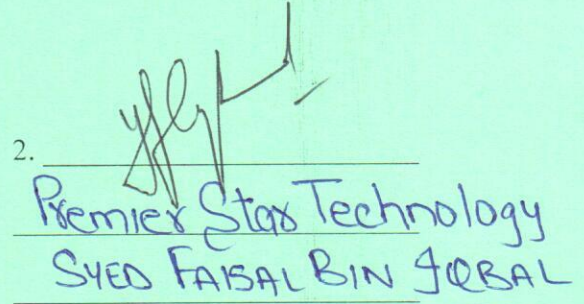 2.
Premier Star Technology
SYED FAISAL BIN IQBAL